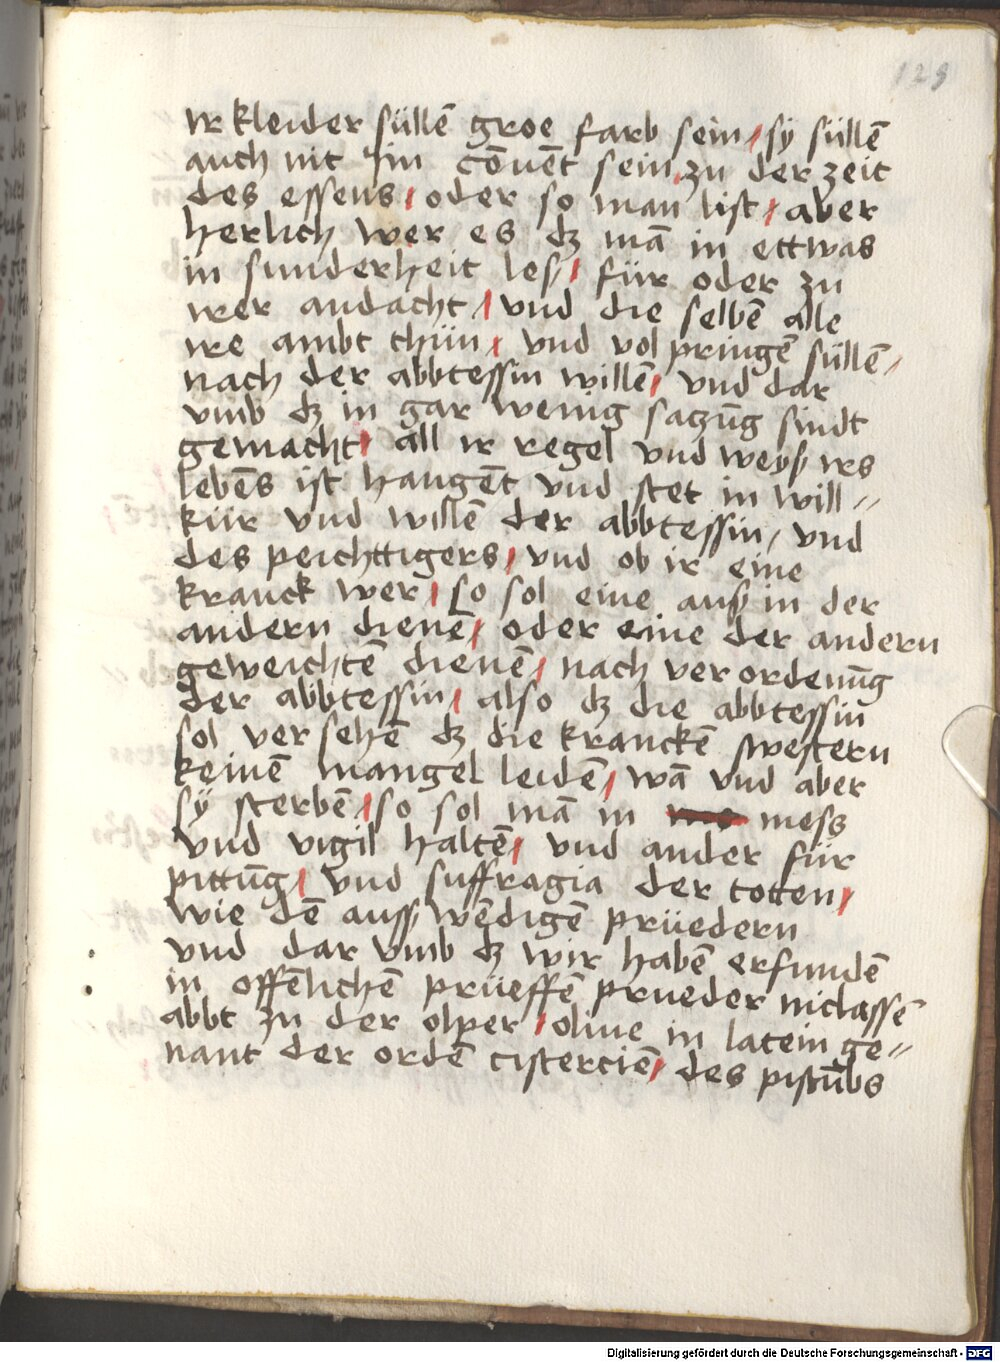 129
ir kleider süllē groe farb sein / sÿ süllē
auch nit jm cōuēt sein zu der zeit
des essens / oder so man list / aber
herlich wer es dz mā in ettwas
in sunderheit les / für oder zu
irer andacht / vnd die selbē alle
ire ambt thün / vnd vol pringē süllē /
nach der abbtessin willē / vnd dar
vmb dz in gar wenig sazūg sindt
gemacht / all ir regel vnd weyß irs
lebēs ist hangēt vnd stet in will //
kür vnd willē der abbtessin / vnd
des peichttigers / vnd ob ir eine
kranck wer / so sol eine auß in der
andern dienē / oder eine der andern
geweichtē dienē / nach ver ordenūg
der abbtessin / also dz die abbtessin
sol ver sehē dz die kranckē swestern
keinē mangel leidē / wā vnd aber
sÿ sterbē / so sol mā in mess
vnd vigil haltē / vnd ander für
pittūg / vnd suffragia der totten /
wie dē auss wēdigē prüedern
vnd dar vmb dz wir habē erfundē
in offēlichē prüeffē prueder niclassē
abbt zu der olper / oliue in latein ge //
nant der ordē cisterciē / des pistūbs
Digitalisierung gefördert durch die Deutsche Forschungsgemeinschaft - DFG